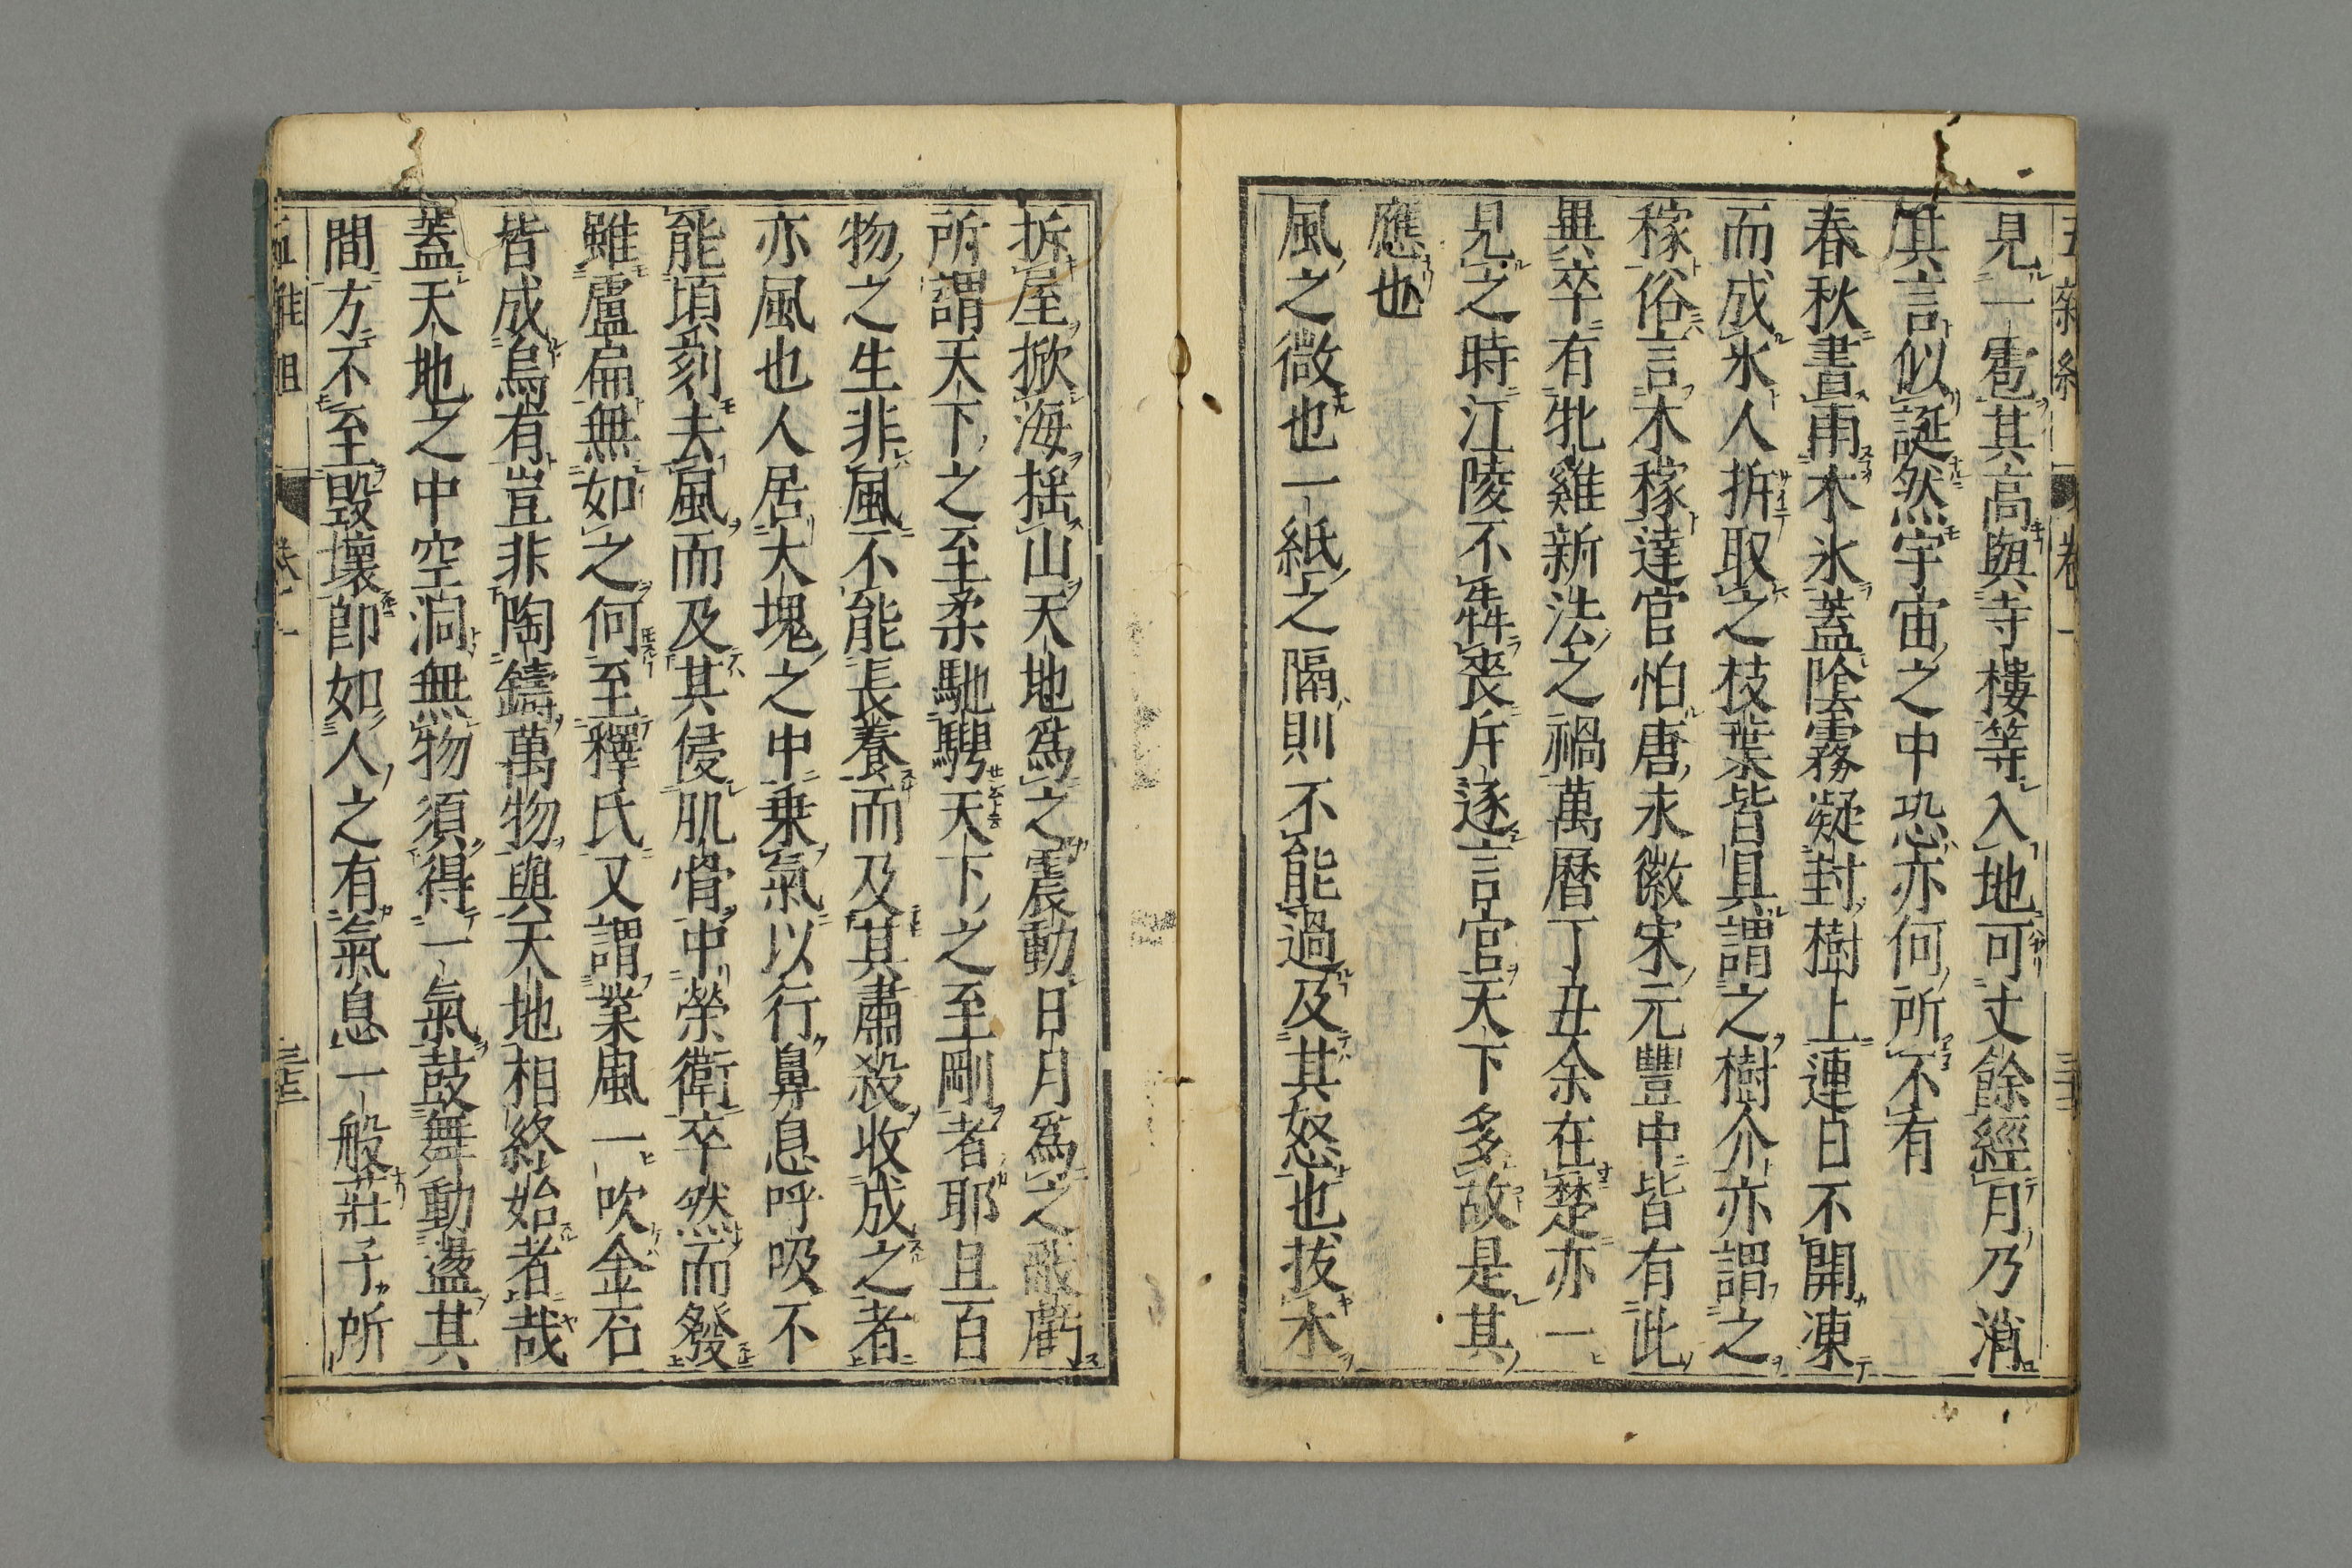 見一雹其高與寺樓等入地可丈餘經月乃消
其言似誕然宇宙之中恐亦何所不有
春秋書雨木氷蓋陰霧凝封樹上連日不開凍
而成氷人拆取之枝葉皆具謂之樹介亦謂之
稼俗言木稼達官怕唐永徽宋元豐中皆有此
異卒有牝雞新法之禍萬曆丁丑余在楚亦一
見之時江陵不奔喪斥逐言官天下多故是其
應也
風之微也一紙之隔則不能過及其怒也拔木
拆屋掀海搖山天地爲之震動日月爲之蔽虧
所謂天下之至柔馳騁天下之至剛者耶且百
物之生非風不能長養而及其肅殺收成之者
亦風也人居大塊之中乗氣以行鼻息呼吸不
能頃刻去風而及其侵肌骨中榮衛卒然而發
雖盧扁無如之何至釋氏又謂業風一吹金石
皆成烏有豈非陶鑄萬物與天地相終始者哉
蓋天地之中空洞無物須得一氣鼓舞動盪其
間方不至毀壞即如人之有氣息一般莊子所